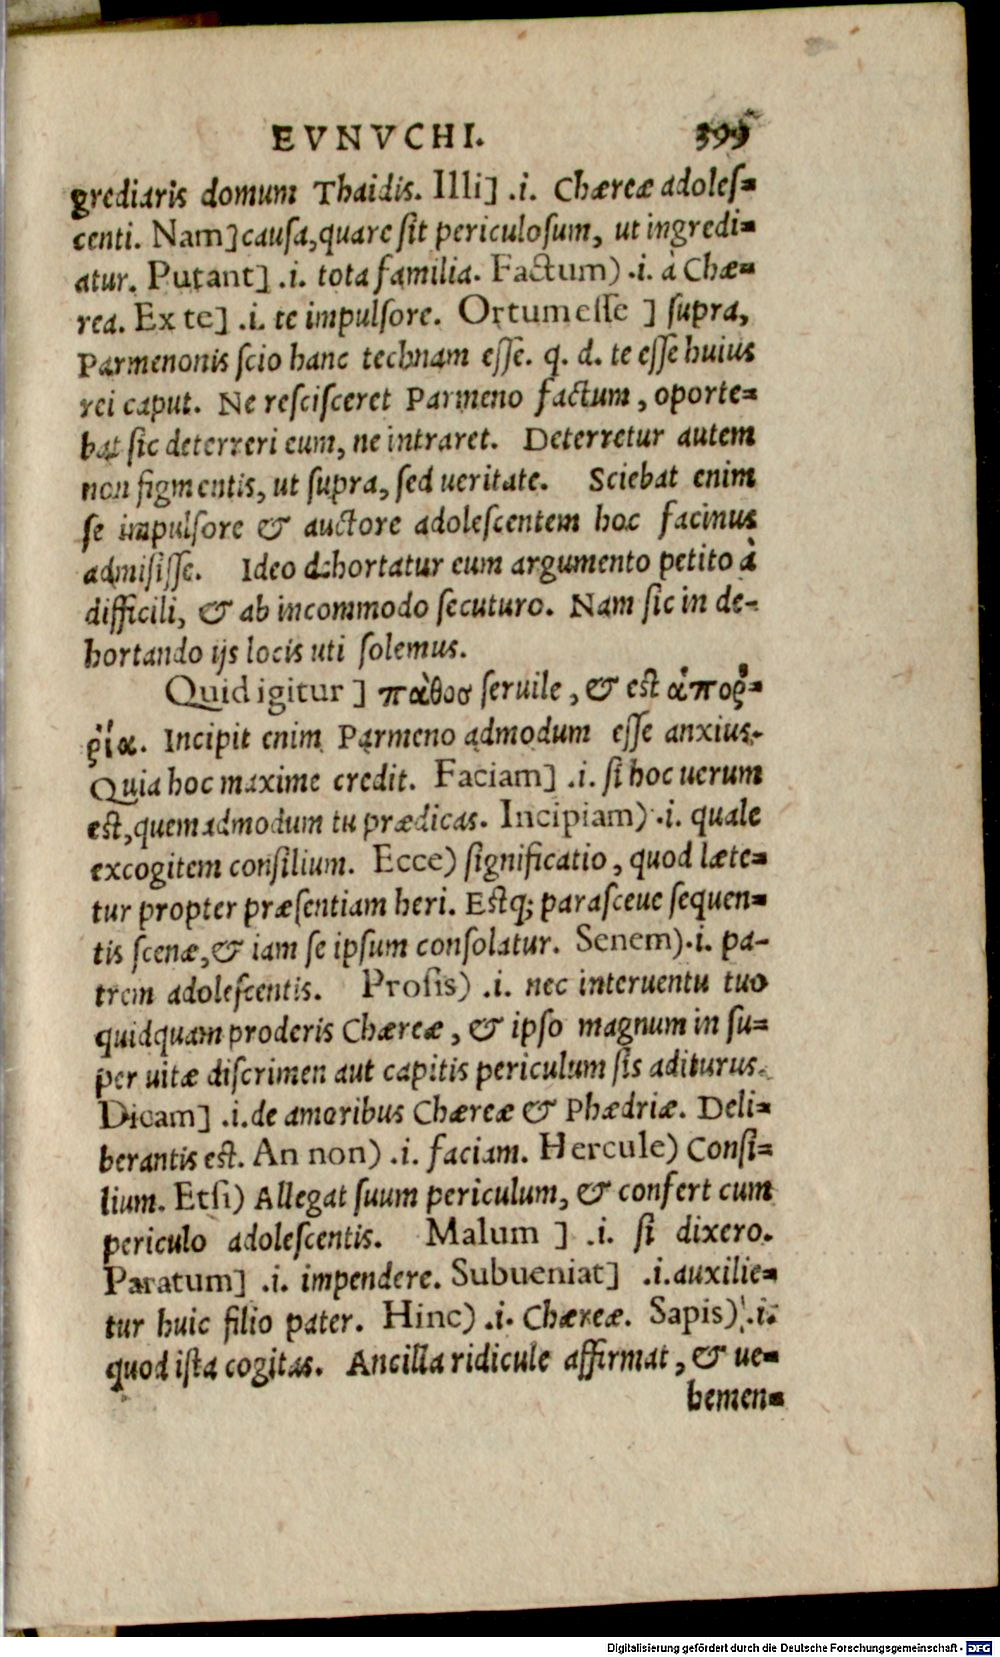 EVNVCHI. 399
grediaris domum Thaidis. Illi] .i. Chæreæ adoles-
centi. Nam] causa, quare sit periculosum, ut ingredi-
atur. Putant] .i. tota familia. Factum) .i. à Chæ-
rea. Ex te] .i. te impulsore. Ortum esse ] supra,
Parmenonis scio hanc technam esse. q. d. te esse huius
rei caput. Ne rescisceret Parmeno factum, oporte-
bat sic deterreri eum, ne intraret. Deterretur autem
non figmentis, ut supra, sed ueritate. Sciebat enim
se impulsore & auctore adolescentem hoc facinus
admisisse. Ideo dehortatur eum argumento petito à
difficili, & ab incommodo secuturo. Nam sic in de-
hortando ijs locis uti solemus.
Quid igitur ] πάθοσ seruile, & est ἀποῤ-
ῥία. Incipit enim Parmeno admodum esse anxius.
Quia hoc maxime credit. Faciam] .i. si hoc uerum
est, quemadmodum tu prædicas. Incipiam) .i. quale
excogitem consilium. Ecce) significatio, quod læte-
tur propter præsentiam heri. Estq; parasceue sequen-
tis scenæ, & iam se ipsum consolatur. Senem) .i. pa-
trem adolescentis. Prosis) .i. nec interuentu tuo
quidquam proderis Chæreæ, & ipso magnum in su-
per uitæ discrimen aut capitis periculum sis aditurus.
Dicam] .i. de amoribus Chæreæ & Phædriæ. Deli-
berantis est. An non) .i. faciam. Hercule) Consi-
lium. Etsi) Allegat suum periculum, & confert cum
periculo adolescentis. Malum ] .i. si dixero.
Paratum] .i. impendere. Subueniat] .i. auxilie-
tur huic filio pater. Hinc) .i. Chæreæ. Sapis) .i.
quod ista cogitas. Ancilla ridicule affirmat, & ue-
hemen-
Digitalisierung gefördert durch die Deutsche Forschungsgemeinschaft - DFG